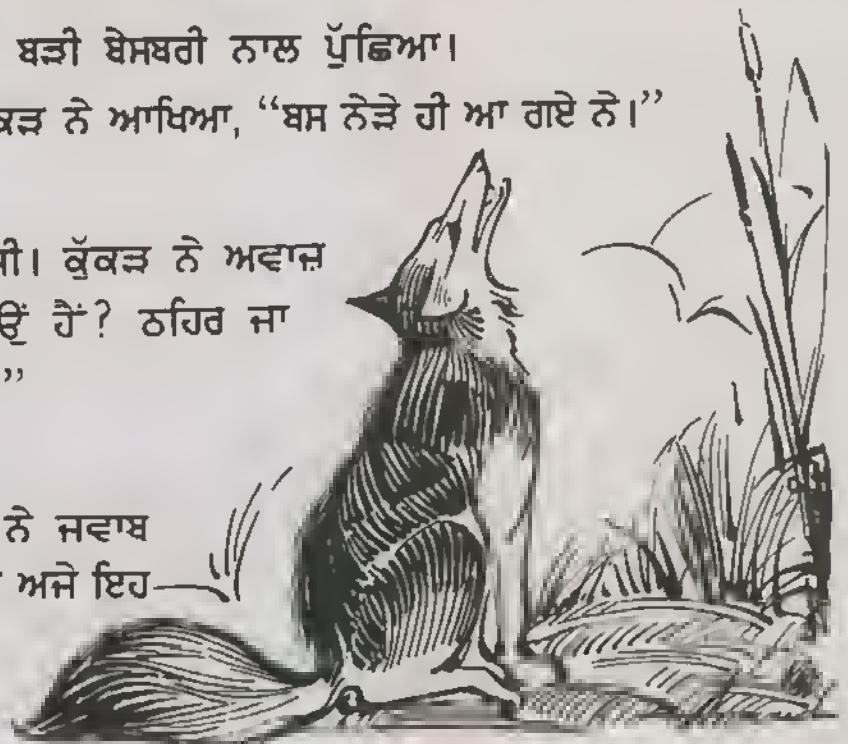 ਬੜੀ ਬੇਸਬਰੀ ਨਾਲ ਪੁੱਛਿਆ।
ਨੇ ਆਖਿਆ, “ਬਸ ਨੇੜੇ ਹੀ ਆ ਗਏ ਨੇ।”
ਕੁੱਕੜ ਨੇ ਅਵਾਜ਼
ਹੈਂ? ਠਹਿਰ ਜਾ
”
ਨੇ ਜਵਾਬ
ਅਜੇ ਇਹ